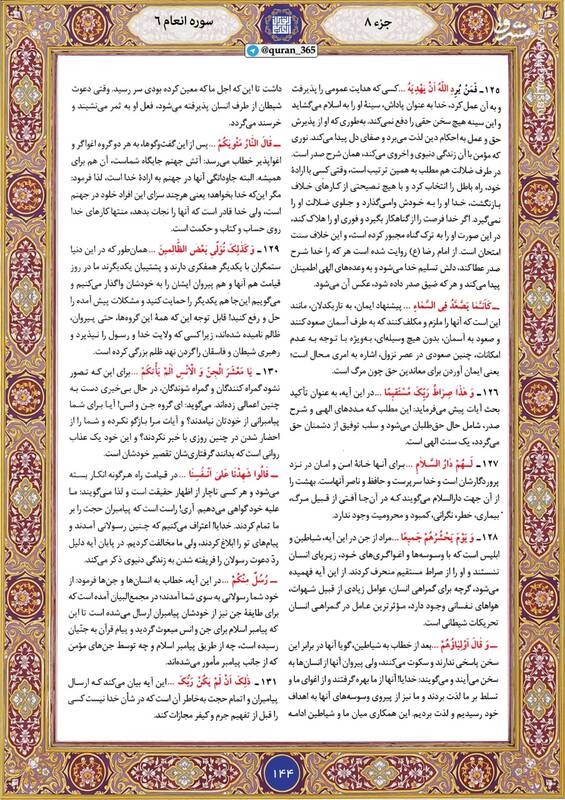 جزء ۸
@quran_365
سوره انعام ۶
۱۲۵ـ فَمَنْ یُرِدِ اللَّهُ أَنْ یَهْدِیَهُ ... کسی که هدایت عمومی را پذیرفت
و به آن عمل کرد، خدا به عنوان پاداش، سینهٔ او را به اسلام می‌گشاید
و این سینه هیچ سخن حقی را دفع نمی‌کند. به‌طوری که او از پذیرش
حق و عمل به احکام دین لذت می‌برد و صفای دل پیدا می‌کند. نوری
که مؤمن با آن زندگی دنیوی و اخروی می‌کند، همان شرح صدر است.
در طرف ضلالت هم مطلب به همین ترتیب است، وقتی کسی با ارادهٔ
خود، راه باطل را انتخاب کرد و با هیچ نصیحتی از کارهای خلاف
بازنگشت، خدا او را به خودش وامی‌گذارد و جلوی ضلالت او را
نمی‌گیرد. اگر خدا فرصت را از گناهکار بگیرد و فوری او را هلاک کند،
در این صورت او را به ترک گناه مجبور کرده است، و این خلاف سنت
امتحان است. از امام رضا (ع) روایت شده است هر که را خدا شرح
صدر عطا کند، دلش تسلیم خدا می‌شود و به وعده‌های الهی اطمینان
پیدا می‌کند و هر که ضیق صدر داده شود، عکس آن می‌شود.
ـ کَأَنَّمَا یَصَّعَّدُ فِی السَّمَاءِ ... پیشنهاد ایمان، به تاریکدلان، مانند
این است که آنها را ملزم و مکلف کنند که به طرف آسمان صعود کنند
و صعود به آسمان، بدون هیچ وسیله‌ای، به‌ویژه با توجه به عدم
امکانات، چنین صعودی در عصر نزول، اشاره به امری محال است؛
یعنی ایمان آوردن برای معاندین حق چون مرگ است.
۱۲۶ـ وَ هَٰذَا صِرَاطُ رَبِّکَ مُسْتَقِیمًا ... در این آیه، به عنوان تأکید
بحث آیات پیش می‌فرماید: این مطلب که مددهای الهی و شرح
صدر، شامل حال حق‌طلبان می‌شود و سلب توفیق از دشمنان حق
می‌گردد، یک سنت الهی است.
۱۲۷ـ لَهُمْ دَارُ السَّلَامِ ... برای آنها خانهٔ امن و امان در نزد
پروردگارشان است و خدا سرپرست و حافظ و ناصر آنهاست. بهشت را
از آن جهت دارالسلام می‌گویند که در آن‌جا آفتی از قبیل مرگ،
بیماری، خطر، نگرانی، کمبود و محرومیت وجود ندارد.
۱۲۸ـ وَ یَوْمَ یَحْشُرُهُمْ جَمِیعًا ... مراد از جن در این آیه، شیاطین و
ابلیس است که با وسوسه‌ها و اغواگری‌های خود، زیرپای انسان
نشستند و او را از صراط مستقیم منحرف کردند. از این آیه فهمیده
می‌شود، گرچه برای گمراهی انسان، عوامل زیادی از قبیل شهوات،
هواهای نفسانی وجود دارد، مؤثرترین عامل در گمراهی انسان
تحریکات شیطانی است.
ـ وَ قَالَ أَوْلِیَاؤُهُمْ ... بعد از خطاب به شیاطین، گویا آنها در برابر این
سخن پاسخی ندارند و سکوت می‌کنند، ولی پیروان آنها از انسان‌ها به
سخن می‌آیند و می‌گویند: خدایا! آنها از ما بهره گرفتند و از اغوای ما و
تسلط بر ما لذت بردند و ما نیز از پیروی وسوسه‌های آنها به اهداف
خود رسیدیم و لذت بردیم. این همکاری میان ما و شیاطین ادامه
داشت تا این که اجل ما که معین کرده بودی سر رسید. وقتی دعوت
شیطان از طرف انسان پذیرفته می‌شود، فعل او به ثمر می‌نشیند و
خرسند می‌گردد.
ـ قَالَ النَّارُ مَثْوٰیکُمْ ... پس از این گفت‌وگوها، به هر دو گروه اغواگر و
اغواپذیر خطاب می‌رسد: آتش جهنم جایگاه شماست، آن هم برای
همیشه. البته جاودانگی آنها در جهنم به ارادهٔ خدا است، لذا فرمود:
مگر این‌که خدا بخواهد؛ یعنی هرچند سزای این افراد خلود در جهنم
است، ولی خدا قادر است که آنها را نجات بدهد، منتها کارهای خدا
روی حساب و کتاب و حکمت است.
۱۲۹ـ وَ کَذٰلِکَ نُوَلِّی بَعْضَ الظَّالِمِینَ ... همان‌طور که در این دنیا
ستمگران با یکدیگر همفکری دارند و پشتیبان یکدیگرند ما در روز
قیامت هم آنها و هم پیروان ایشان را به خودشان واگذار می‌کنیم و
می‌گوییم این‌جا هم یکدیگر را حمایت کنید و مشکلات پیش آمده را
حل و رفع کنید! قابل توجه این که همهٔ این گروه‌ها، حتی پیروان،
ظالم نامیده شده‌اند، زیرا کسی که ولایت خدا و رسول را نپذیرد و
رهبری شیطان و فاسقان را گردن نهد ظلم بزرگی کرده است.
۱۳۰ـ یَا مَعْشَرَ الْجِنِّ وَ الْإِنْسِ أَلَمْ یَأْتِکُمْ ... برای این که تصور
نشود گمراه کنندگان و گمراه شوندگان، در حال بی‌خبری دست به
چنین اعمالی زده‌اند. می‌گوید: ای گروه جن و انس! آیا برای شما
پیامبرانی از خودتان نیامدند؟ و آیات مرا بازگو نکرده و شما را از
احضار شدن در چنین روزی با خبر نکردند؟ و این خود یک عذاب
روانی است که بدانند گرفتاری‌شان تقصیر خودشان است.
ـ قَالُوا شَهِدْنَا عَلَىٰ أَنْفُسِنَا ... در قیامت راه هرگونه انکار بسته
می‌شود و هر کسی ناچار از اظهار حقیقت است و لذا می‌گویند: ما
علیه خود گواهی می‌دهیم. آری! راست است که پیامبران حجت را بر
ما تمام کردند. خدایا! اعتراف می‌کنیم که چنین رسولانی آمدند و
پیام‌های تو را ابلاغ کردند، ولی ما مخالفت کردیم. در پایان آیه دلیل
ردّ دعوت رسولان را فریفته شدن به زندگی دنیوی ذکر می‌کند.
ـ رُسُلٌ مِنْکُمْ ... در این آیه، خطاب به انسان‌ها و جن‌ها فرمود: از
خود شما رسولانی به سوی شما آمدند؛ در مجمع‌البیان آمده است که
برای طایفهٔ جن نیز از خودشان پیامبران ارسال می‌شده است تا این
که پیامبر اسلام برای جن و انس مبعوث گردید و پیام قرآن به جنّیان
رسیده است، چه از طریق پیامبر اسلام و چه توسط جن‌های مؤمن
که از جانب پیامبر مأمور می‌شده‌اند.
۱۳۱ـ ذٰلِکَ أَنْ لَمْ یَکُنْ رَبُّکَ ... این آیه بیان می‌کند که ارسال
پیامبران و اتمام حجت به‌خاطر آن است که در شأن خدا نیست کسی
را قبل از تفهیم جرم و کیفر مجازات کند.
۱۴۴